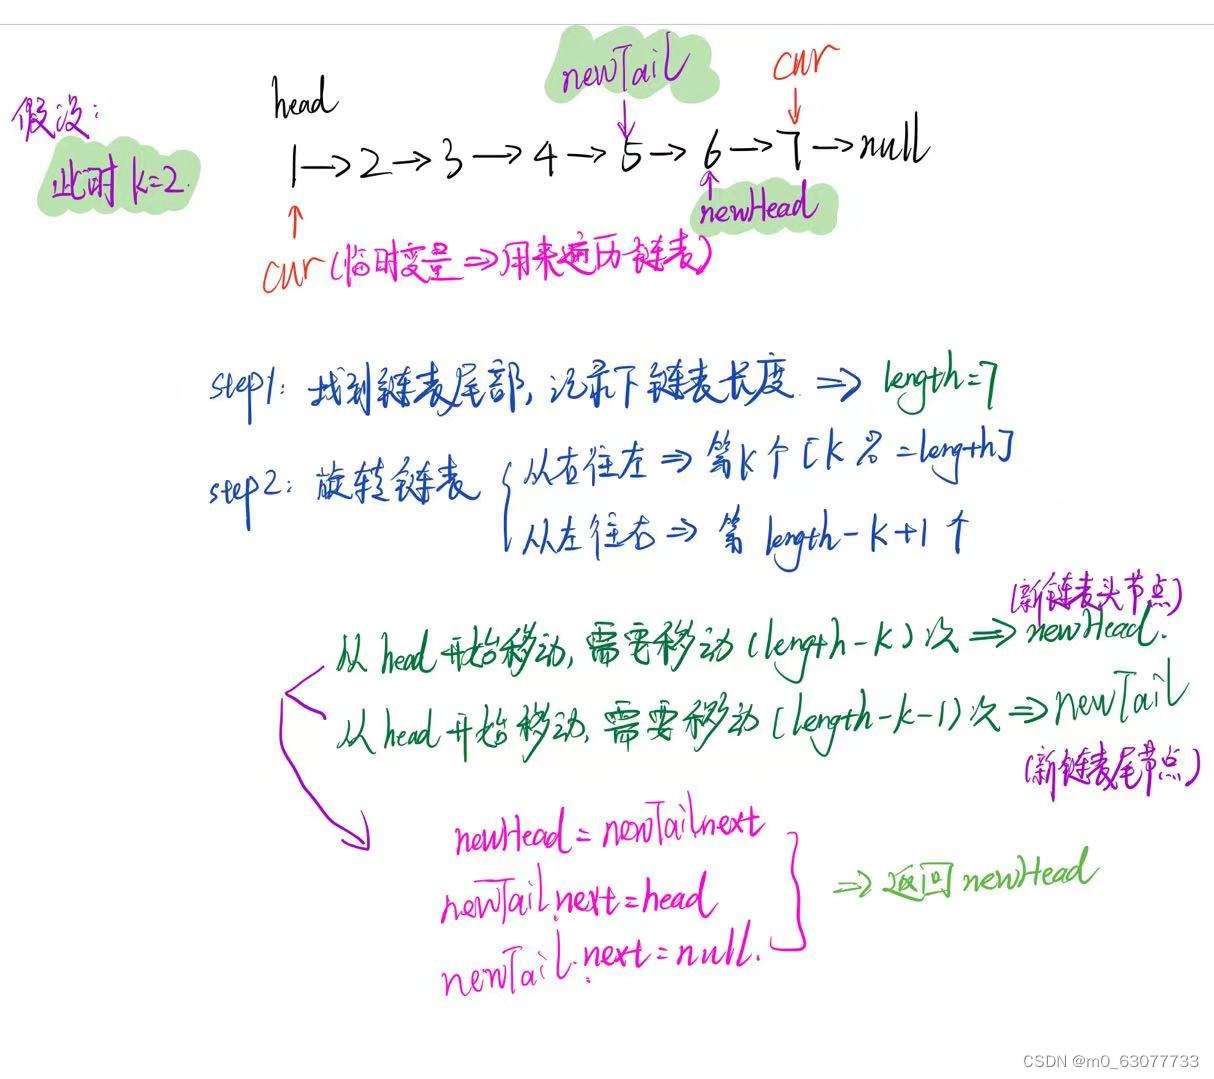 newTail
cur
head
假设:
1→2→3→4→5→6→7→null
此时 k=2.
newHead
cur(临时变量⇒用来遍历链表)
step1: 找到链表尾部,记录下链表长度 ⇒ length=7
step2: 旋转链表 { 从右往左 ⇒ 第k个 [k %=length]
从左往右 ⇒ 第 length-k+1 个
(新链表头节点)
从 head 开始移动,需要移动(length-k)次 ⇒ newHead.
从 head 开始移动,需要移动(length-k-1)次 ⇒ newTail
(新链表尾节点)
newHead = newTail next
newTail.next=head
newTail.next=null.
⇒ 返回 newHead
CSDN @m0_63077733